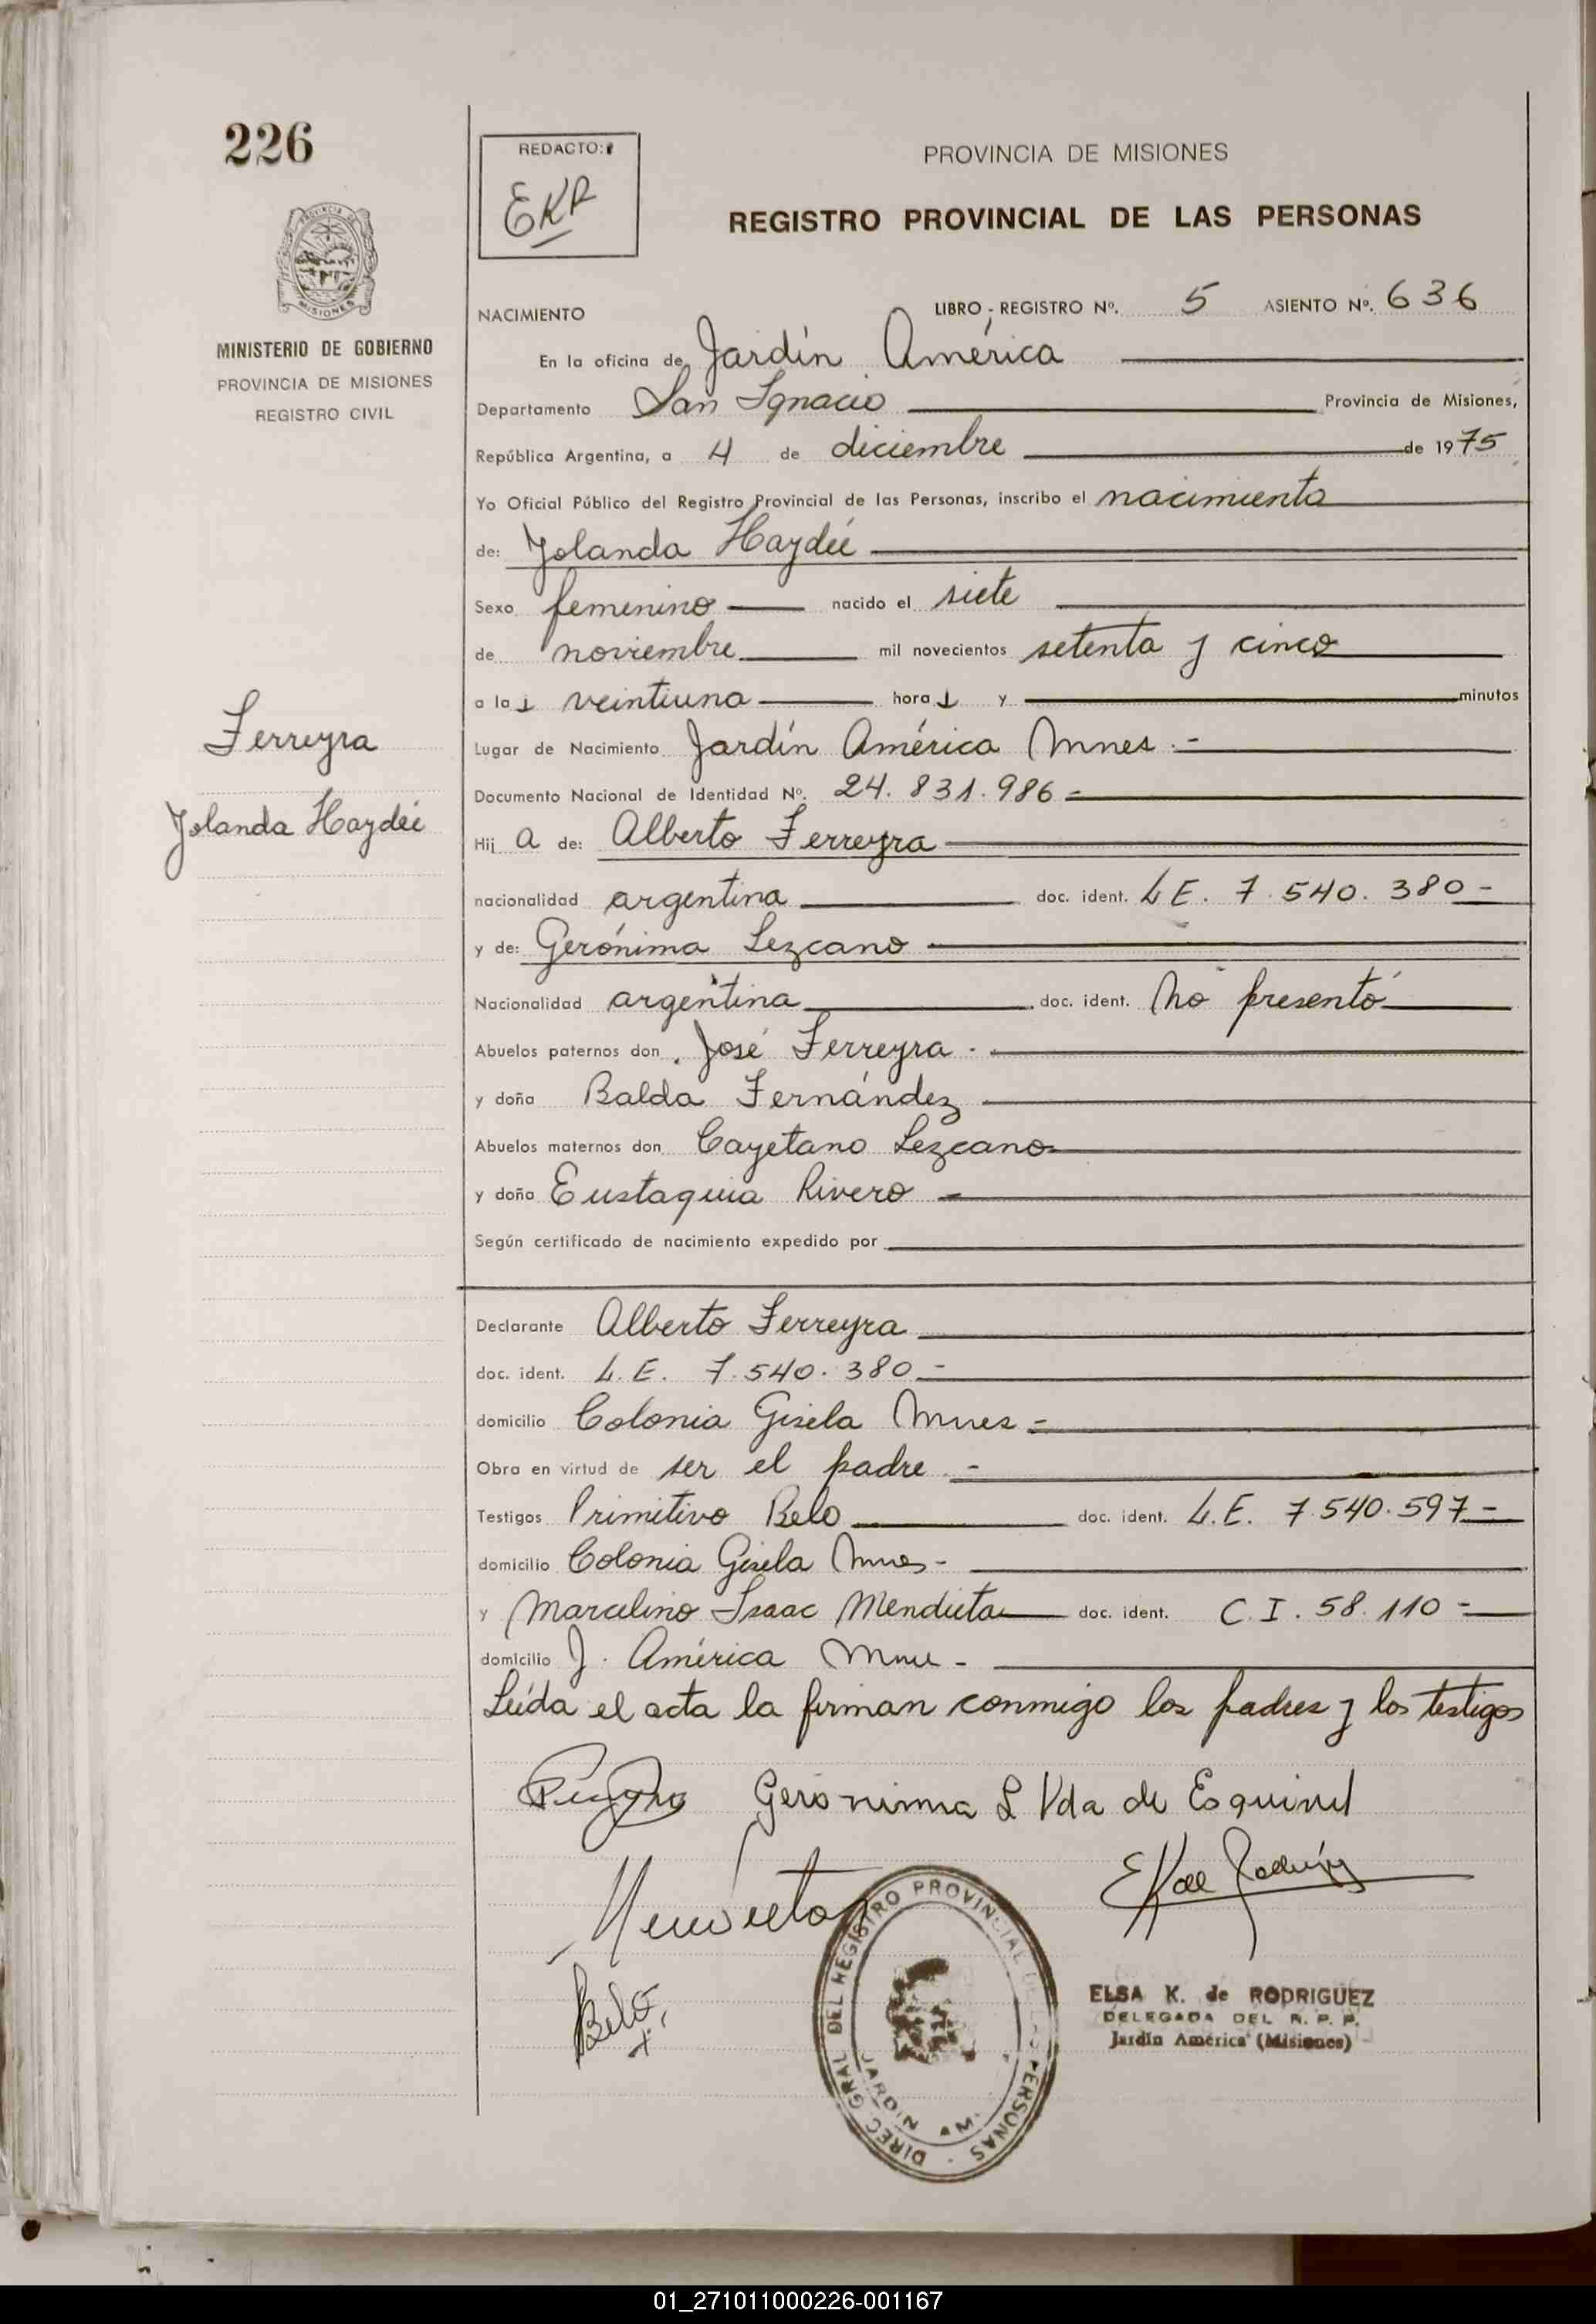 226
REDACTO:
EKR
PROVINCIA DE MISIONES
REGISTRO PROVINCIAL DE LAS PERSONAS
MINISTERIO DE GOBIERNO
PROVINCIA DE MISIONES
REGISTRO CIVIL
NACIMIENTO LIBRO; REGISTRO Nº. 5 ASIENTO Nº. 636
En la oficina de Jardín América
Departamento San Ignacio Provincia de Misiones,
República Argentina, a 4 de diciembre de 1975
Yo Oficial Público del Registro Provincial de las Personas, inscribo el nacimiento
de: Yolanda Haydée
Sexo femenino nacido el siete
de noviembre mil novecientos setenta y cinco
a las veintiuna horas y minutos
Ferreyra
Yolanda Haydée
Lugar de Nacimiento Jardín América Mnes.-
Documento Nacional de Identidad Nº. 24.831.986-
Hija de: Alberto Ferreyra
nacionalidad argentina doc. ident. L.E. 7.540.380-
y de: Gerónima Lezcano
Nacionalidad argentina doc. ident. no presentó
Abuelos paternos don José Ferreyra.-
y doña Balda Fernández
Abuelos maternos don Cayetano Lezcano
y doña Eustaquia Rivero-
Según certificado de nacimiento expedido por
Declarante Alberto Ferreyra
doc. ident. L.E. 7.540.380-
domicilio Colonia Gisela Mnes-
Obra en virtud de ser el padre.-
Testigos Primitivo Belo doc. ident. L.E. 7.540.597-
domicilio Colonia Gisela Mnes-
y Marcelino Isaac Mendieta doc. ident. C.I. 58.110-
domicilio J. América Mnes-
Leída el acta la firman conmigo los padres y los testigos
Geronima L Vda de Esquivel
Mendieta
Belo
DIREC. GRAL DEL REGISTRO PROVINCIAL DE LAS PERSONAS
JARDIN AM.
ELSA K. de RODRIGUEZ
DELEGADA DEL R. P. P.
Jardín América (Misiones)
01_271011000226-001167